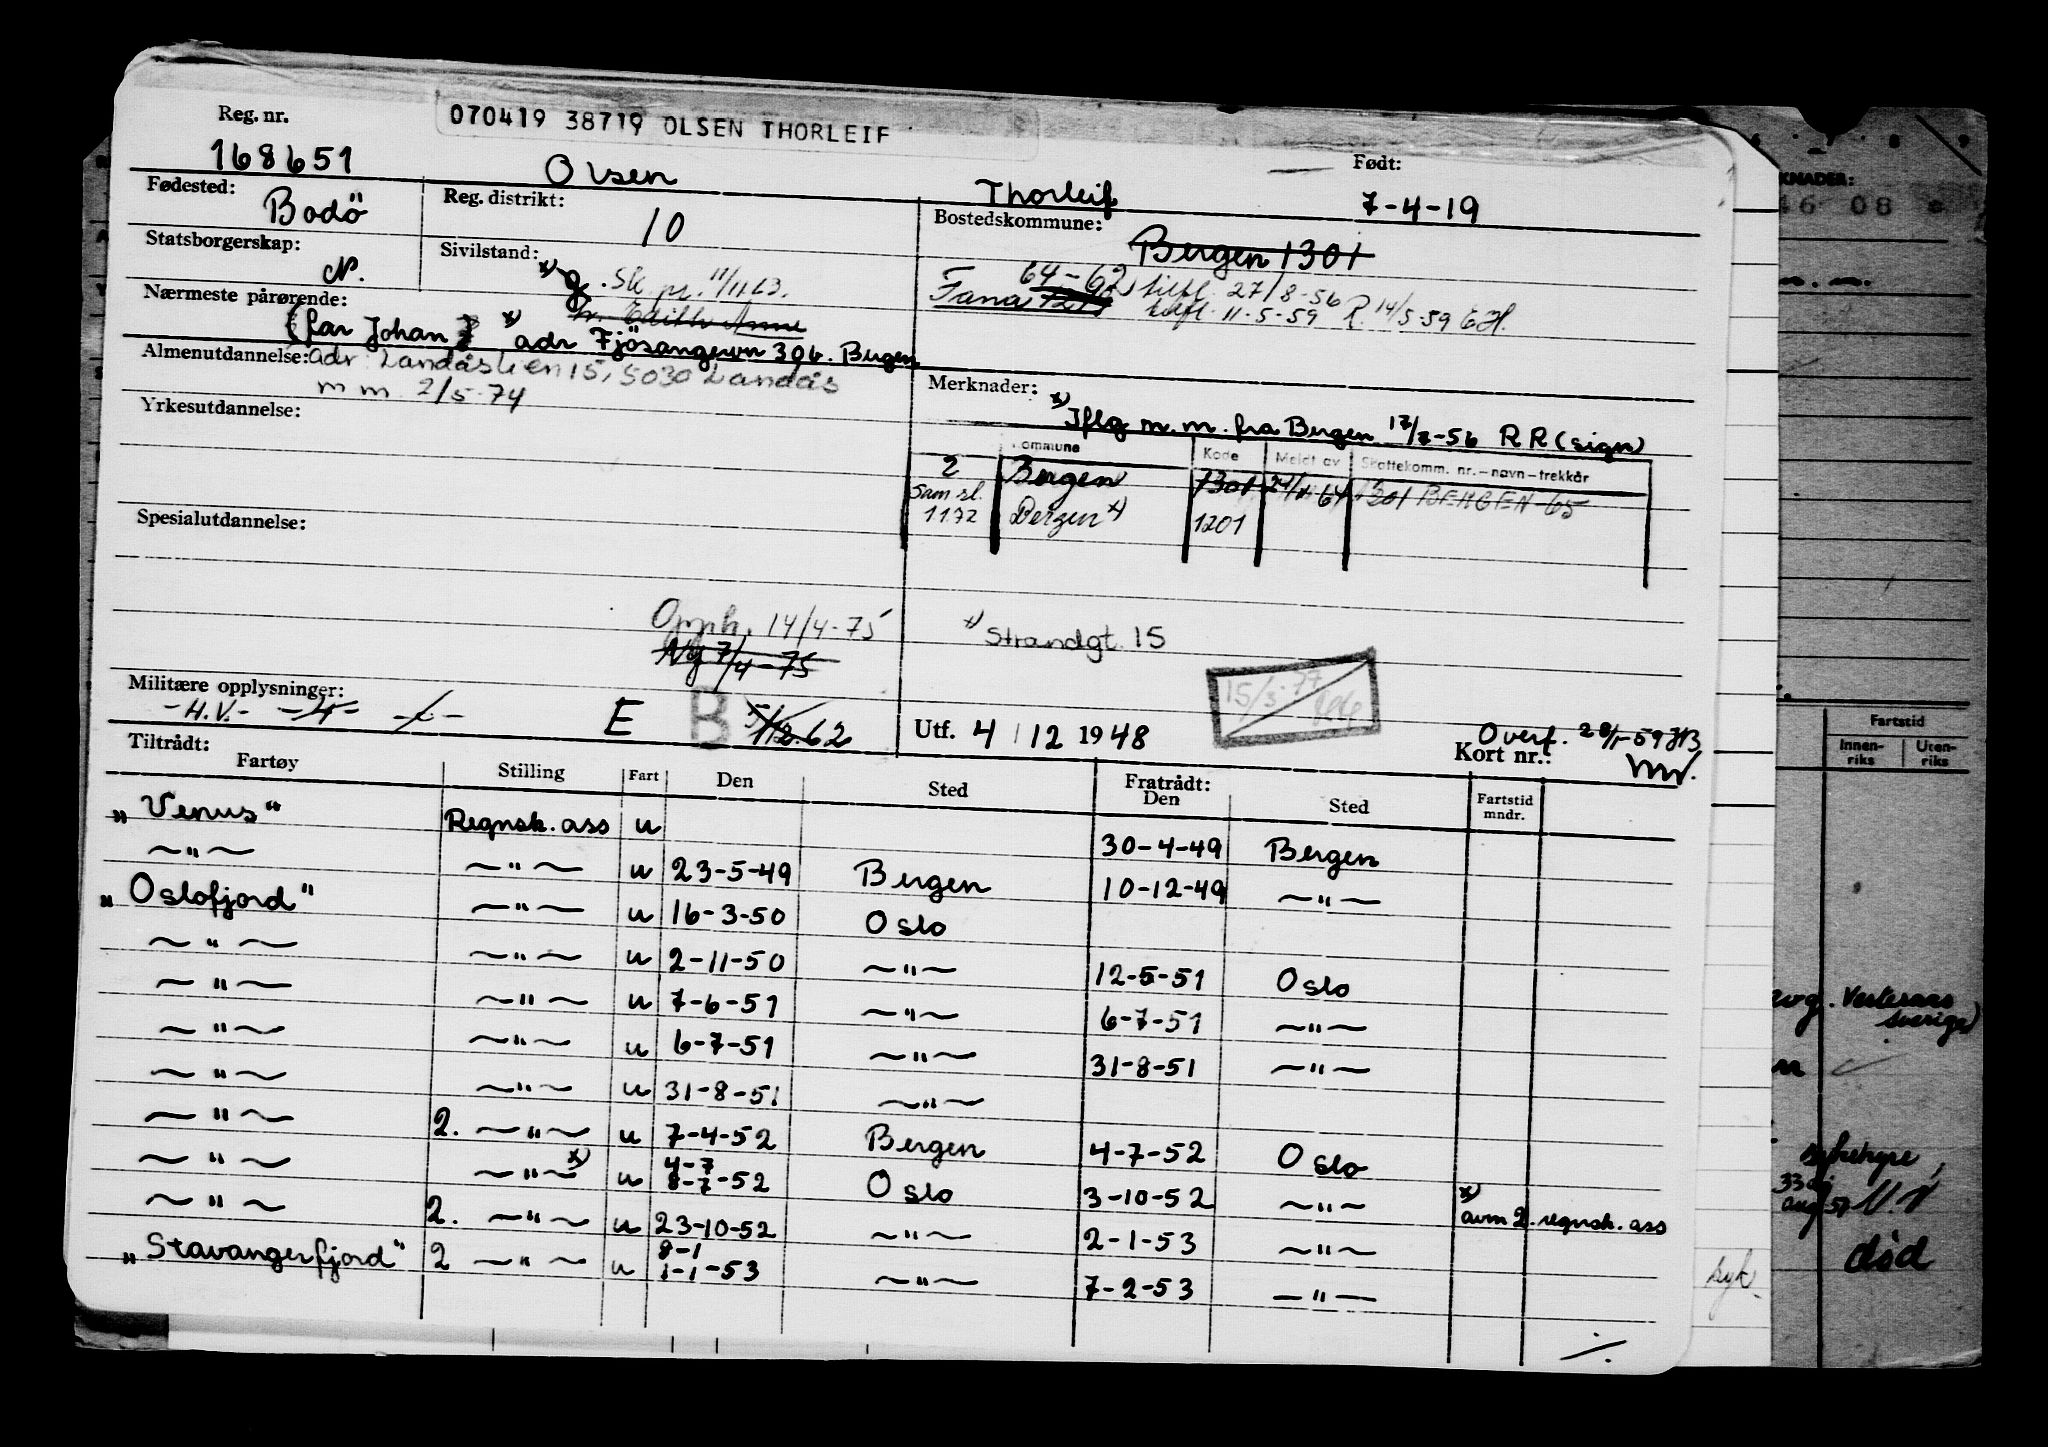 070419 38719 OLSEN THORLEIF
Reg. nr. 168651 Olsen Thorleif Født: 7-4-19
Fødested: Bodö
Reg. distrikt: 10
Bostedskommune: Bergen 1301
Statsborgerskap: N.
Sivilstand: x) g. Sk. pr. 11/11 63.
64-62 tilfl. 27/8-56
Fana tilfl. 11-5-59 R. 14/5-59
Nærmeste pårørende: fr. Edith Anne
(far Johan) x) adr Fjösangervn 30b. Bergen
Almenutdannelse: adr. Landåslien 15, 5030 Landås
m m 2/5-74
Merknader:
x) Iflg m.m. fra Bergen 17/7-56 RR (sign)
Yrkesutdannelse:
Kommune Kode Meldt av Skattekomm. nr.-navn-trekkår
2 Bergen 1301 64 1301 BERGEN 65
Sam sl. 1172 Bergen x) 1201
Spesialutdannelse:
Opph. 14/4-75
Ng 7/4-75
x) Strandgt. 15
15/3-77
Militære opplysninger:
-H.V.-
E B 62
Utf. 4/12 1948
Overf. 28/1-59 JB
Kort nr.:
Tiltrådt: Fratrådt:
Fartøy Stilling Fart Den Sted Den Sted Fartstid mndr.
"Venus" Regnsk. ass u 30-4-49 Bergen
—"— —"— u 23-5-49 Bergen 10-12-49 —"—
"Oslofjord" —"— u 16-3-50 Oslo
—"— —"— u 2-11-50 —"— 12-5-51 Oslo
—"— —"— u 7-6-51 —"— 6-7-51 —"—
—"— —"— u 6-7-51 —"— 31-8-51 —"—
—"— —"— u 31-8-51 —"—
—"— 2. —"— u 7-4-52 Bergen 4-7-52 Oslo
—"— —"— x) u 4-7 8-7-52 Oslo 3-10-52 —"— x) avm 2. regnsk. ass
—"— 2. —"— u 23-10-52 —"— 2-1-53 —"—
"Stavangerfjord" 2 —"— u 8-1 1-1-53 —"— 7-2-53 —"—
./.
KNADER:
46 08
Fartstid
Innen-riks Uten-riks
Vesteraas
Sverige)
sykehyre,
død
syk.